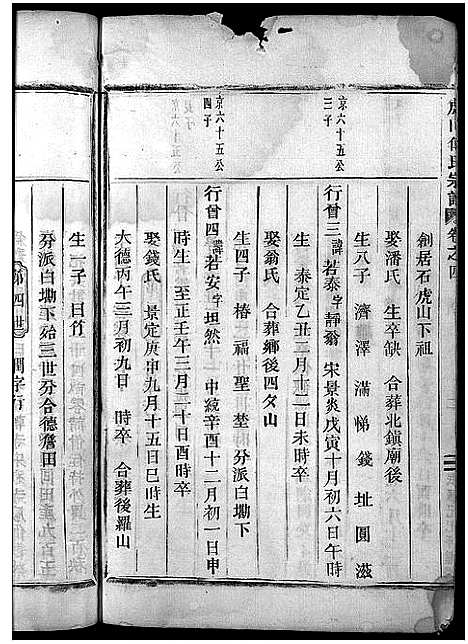 虎山何氏宗譜 卷之四
創居石虎山下祖
娶潘氏 生卒缺 合葬北鎮廟後
生八子 濟 澤 滿 悌 錢 址 圓 滋
京六十五公三子
行曾三 諱若泰 字靜翁 宋景炎戊寅十月初六日午時
生 泰定乙丑二月十二日未時卒
娶翁氏 合葬鄉後四畝山
生四子 椿 福 聖 埜 分派白墈下
京六十五公四子
行曾四 諱若安 字坦然 中統辛酉十二月初一日申
時生 至正壬午三月二十日酉時卒
娶錢氏 景定庚申九月十五日巳時生
大德丙午三月初九日 時卒 合葬後羅山
生一子 曰竹
分派白墈下始三世分合德詹田
第四世